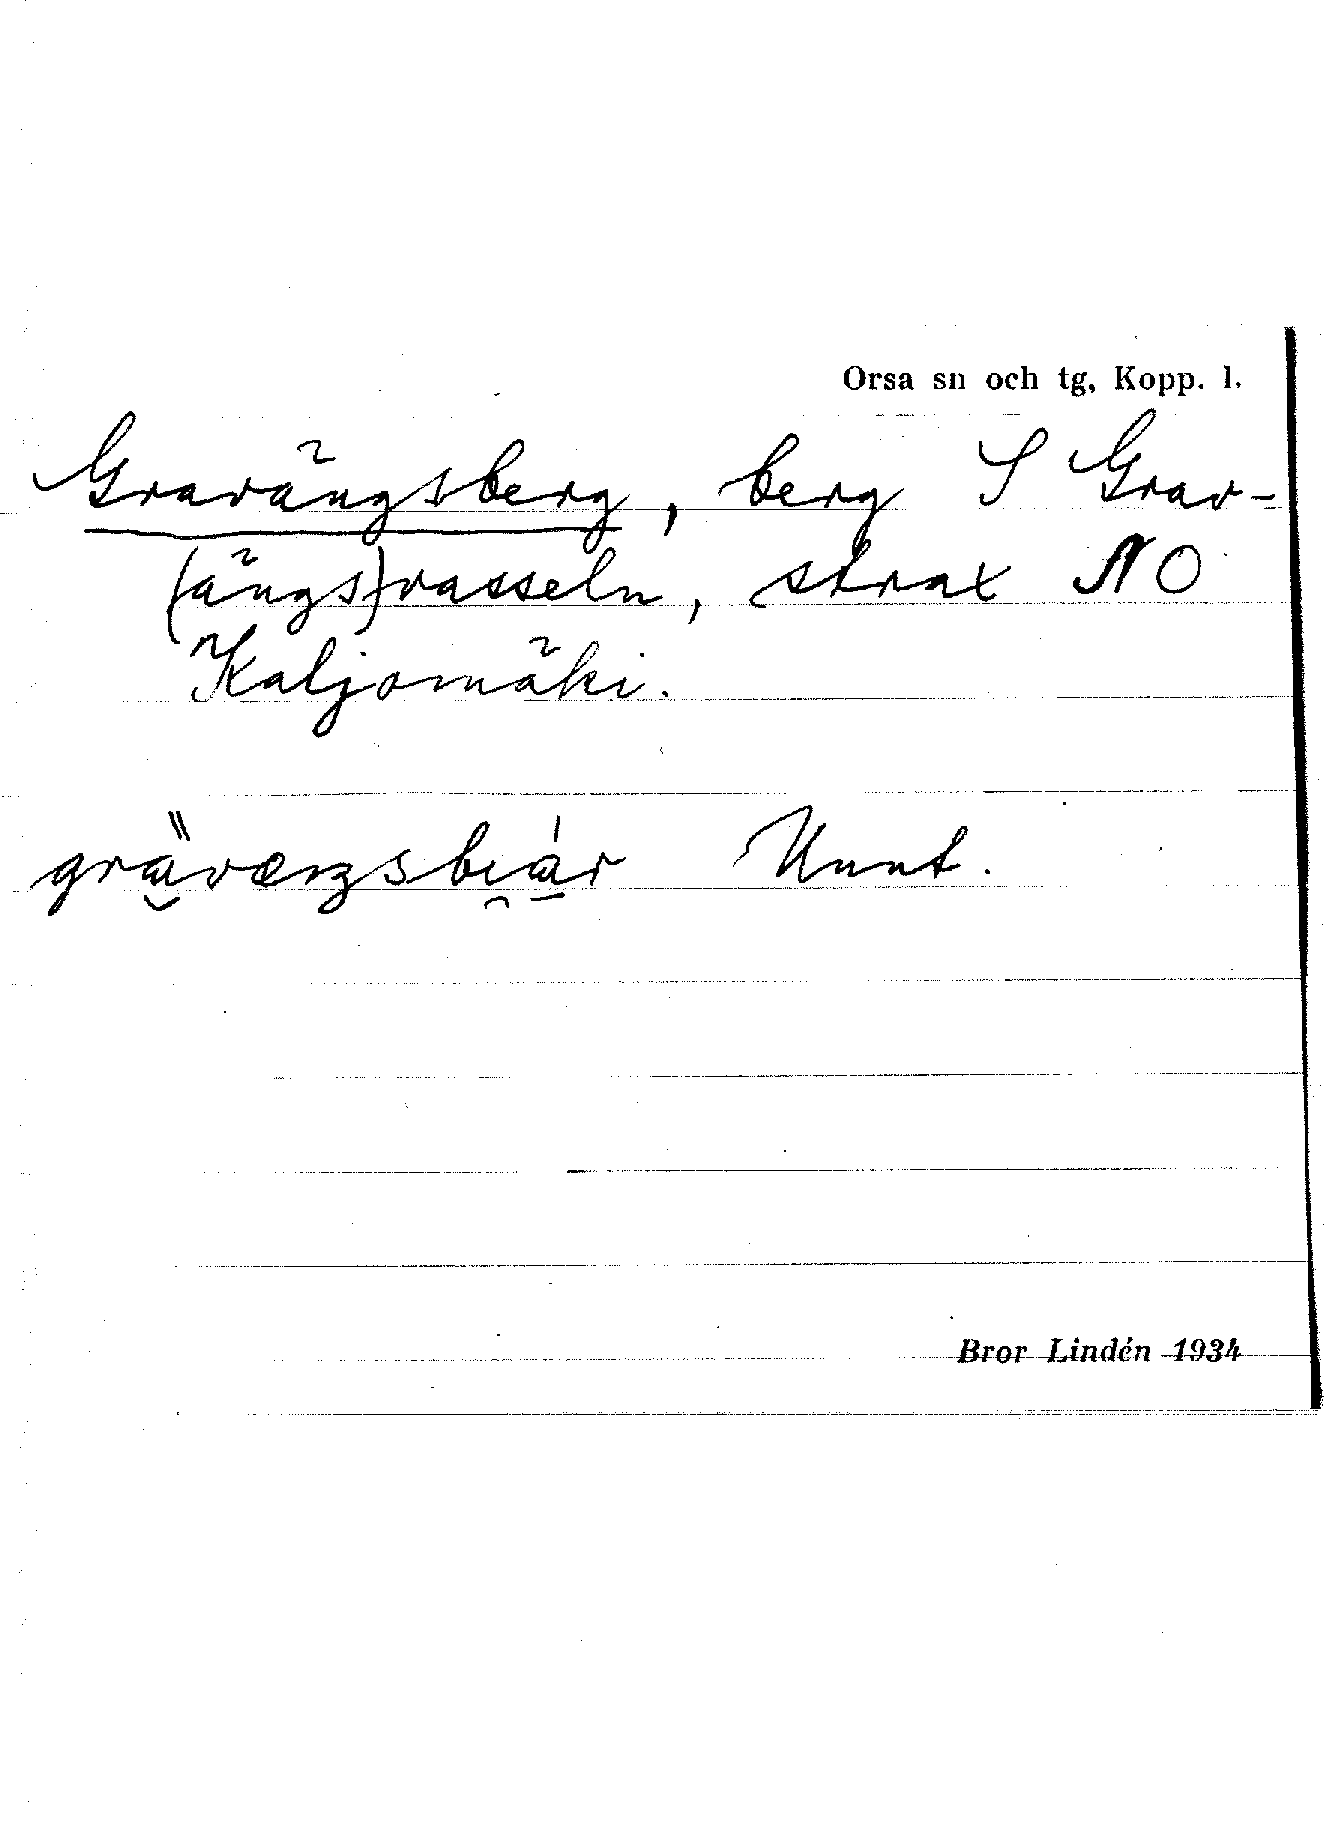 Orsa sn och tg, Kopp. l.
Gravängsberg, berg S Grav-
(ängs)vasseln, strax NO
Kaljomäki.
grävæŋsbıár Unnt.
Bror Lindén 1934